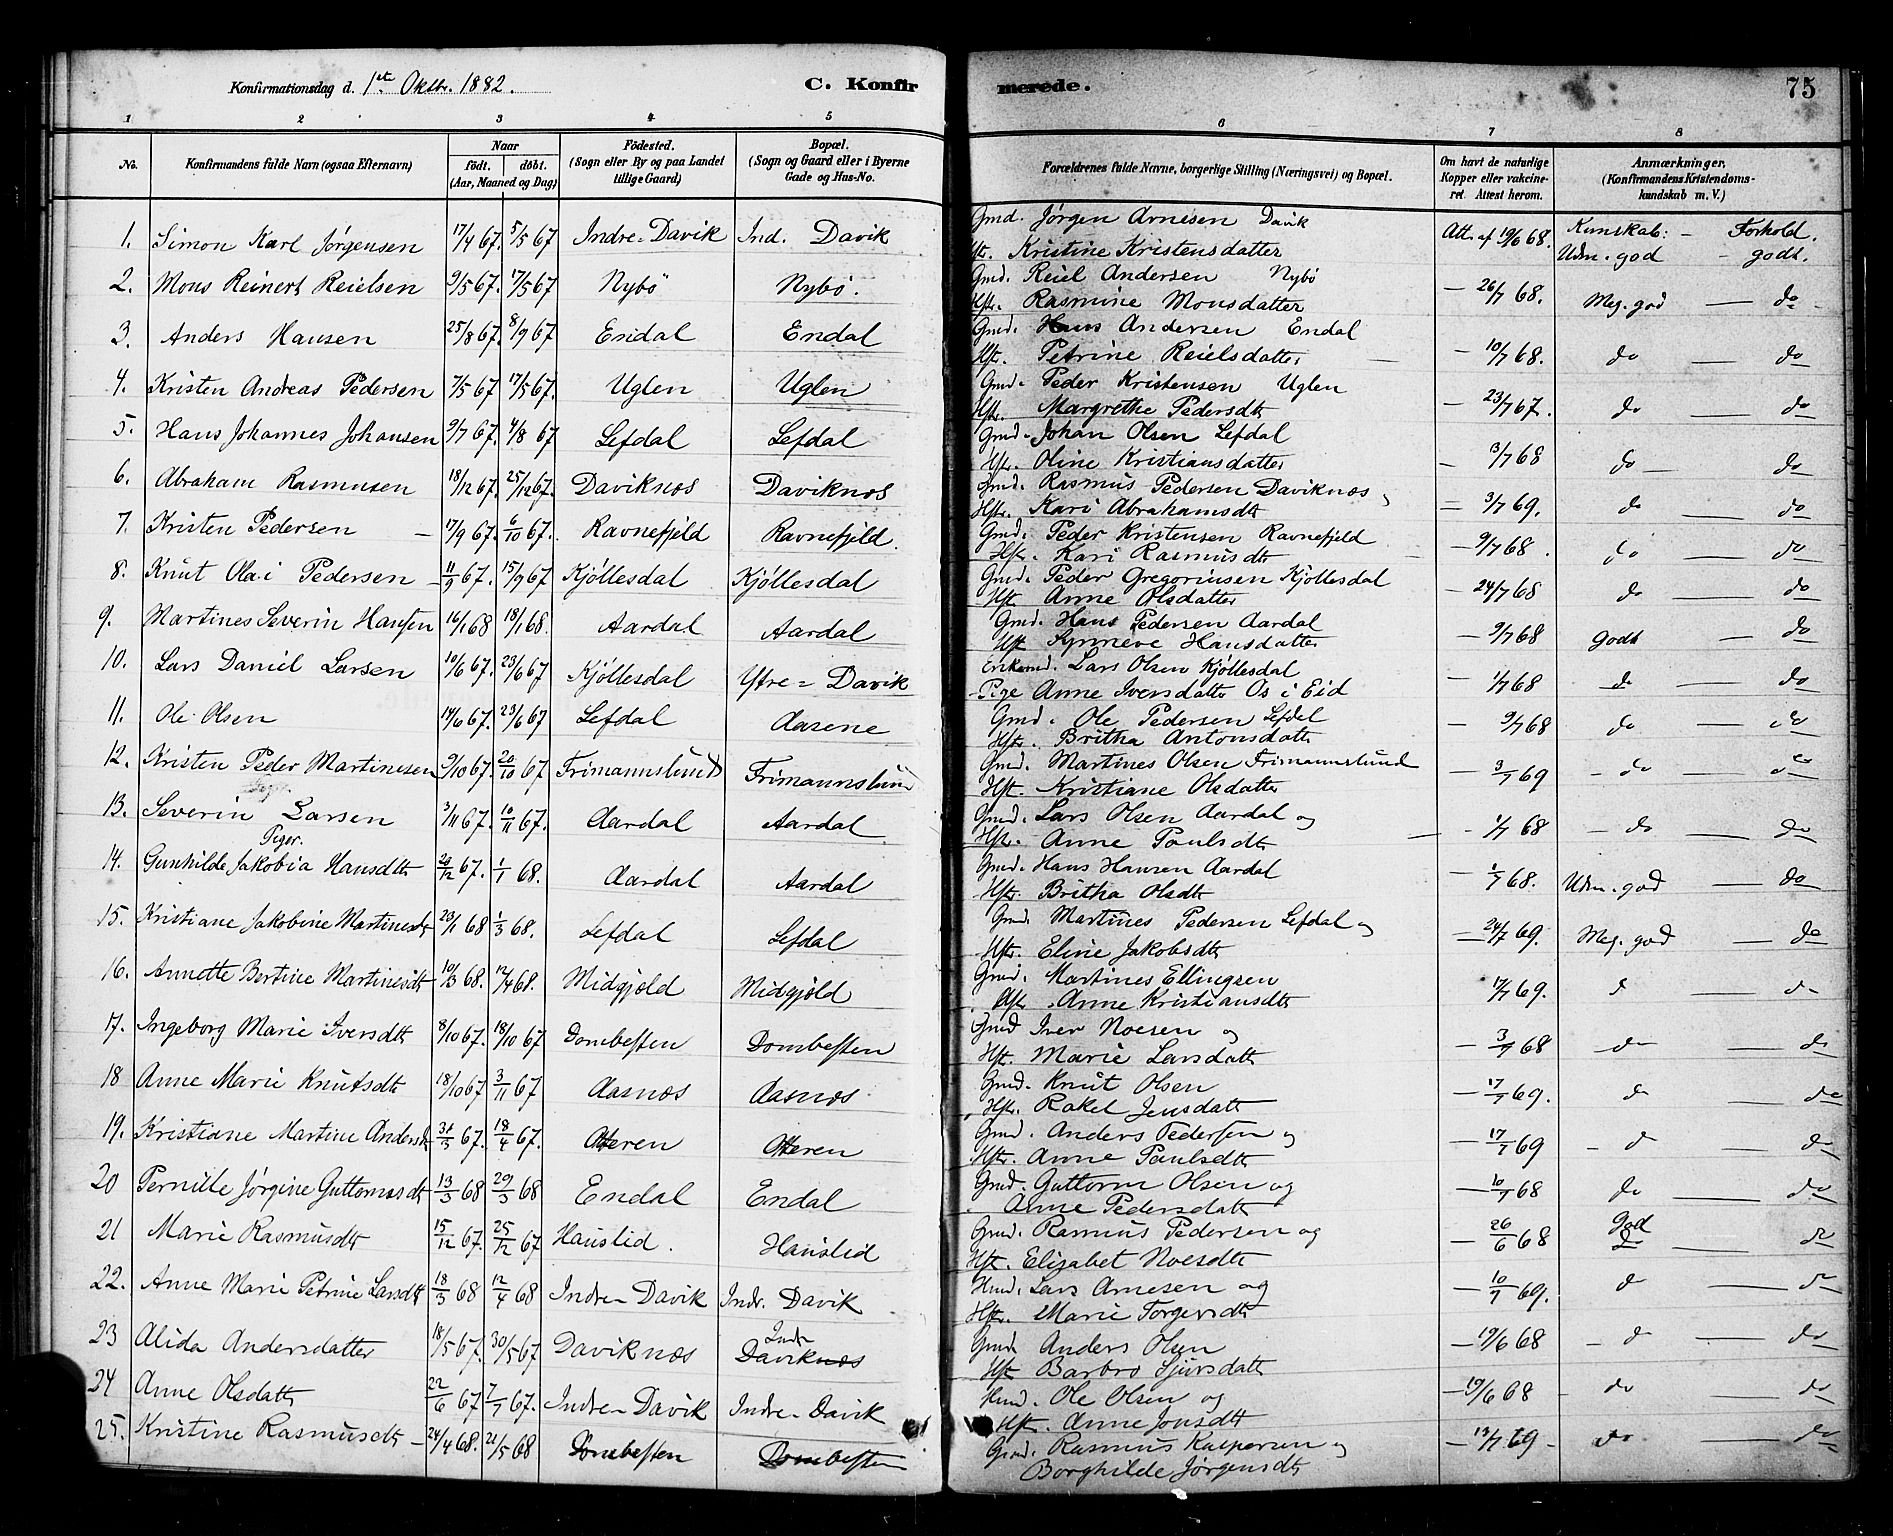 Konfirmationsdag d. 1ste Oktbr. 1882. C. Konfirmerede. 75
1 2 3 4 5 6 7 8
No. Konfirmandens fulde Navn (ogsaa Efternavn) Naar født. døbt. (Aar, Maaned og Dag) Fødested. (Sogn eller By og paa Landet tillige Gaard) Bopæl. (Sogn og Gaard eller i Byerne Gade og Hus-No. Forældrenes fulde Navne, borgerlige Stilling (Næringsvei) og Bopæl. Om havt de naturlige Kopper eller vakcineret. Attest herom. Anmærkninger, (Konfirmandens Kristendomskundskab m. V.)
1. Simon Karl Jørgensen 17/4 67. 5/5 67 Indre-Davik Ind. Davik Gmd. Jørgen Arnesen Davik Att. af 19/6 68. Kunskab: - Forhold.
Hst. Kristine Kristensdatter Udm. god - godt.
2. Mons Reinert Reielsen 9/5 67. 17/5 67 Nybö Nybø. Gmd. Reiel Andersen Nybø
Hst. Rasmine Monsdatter - 26/7 68. Meg. god - do
3. Anders Hansen 25/8 67. 8/9 67 Endal Endal Gmd. Hans Andersen Endal
Hst. Petrine Reielsdatter - 10/7 68. do - do
4. Kristen Andreas Pedersen 7/5 67 17/5 67. Uglen Uglen Gmd. Peder Kristensen Uglen
Hst. Margrethe Pedersdt - 23/7 67. do - do
5. Hans Johannes Johansen 9/7 67. 4/8 67 Lefdal Lefdal Gmd. Johan Olsen Lefdal
Hst. Oline Kristiansdatter - 3/7 68 do - do
6. Abraham Rasmusen 18/12 67. 25/12 67. Daviknæs Daviknæs Gmd. Rasmus Pedersen Daviknæs
Hst. Kari Abrahamsdt - 3/7 69. do - do
7. Kristen Pedersen - 17/9 67. 6/10 67. Ravnefjeld Ravnefjeld. Gmd. Peder Kristensen Ravnefjeld
Hst. Kari Rasmusdt - 9/7 68. do - do
8. Knut Olai Pedersen - 11/9 67. 15/9 67 Kjøllesdal Kjøllesdal Gmd. Peder Gregoriusen Kjøllesdal
Hst Anne Olsdatter - 24/7 68 do - do
9. Martines Severin Hansen 16/1 68 18/1 68. Aardal Aardal Gmd. Hans Pedersen Aardal
Hst Synneve Hansdatter - 9/7 68 godt - do
10. Lars Daniel Larsen 10/6 67. 23/6 67 Kjøllesdal Ytre = Davik Enkemd. Lars Olsen Kjøllesdal
Pige Anne Iversdatter Os i Eid - 1/7 68 do - do
11. Ole Olsen 14/6 67. 23/6 67 Lefdal Aasene Gmd. Ole Pedersen Lefdal
Hst. Britha Antonsdatt - 9/7 68 do - do
12. Kristen Peder Martinesen 9/10 67. 20/10 67 Frimannslund Frimannslund Gmd. Martines Olsen Frimannslund
Hst. Kristiane Olsdatter - 3/7 69 - do - do
13. Severin Larsen 3/11 67. 10/11 67. Aardal Aardal Gmd. Lars Olsen Aardal og
Hst. Anne Paulsdt - 1/7 68 - do - do
Piger.
14. Gunhilde Jakobia Hansdt 20/12 67. 1/1 68. Aardal Aardal Gmd. Hans Hansen Aardal
Hst. Britha Olsdt - 1/7 68. Udm. god - do
15. Kristiane Jakobine Martinesdt 23/1 68 1/3 68. Lefdal Lefdal Gmd. Martines Pedersen Lefdal og
Hst. Eline Jakobsdt - 24/7 69. Meg. god - do
16. Annette Bertine Martinesdt 10/3 68. 12/4 68. Midgjøld Midgjøld Gmd. Martines Ellingsen
Hst. Anne Kristiansdt - 17/7 69. d - do
17. Ingeborg Marie Iversdt 8/10 67. 18/10 67 Dombesten Dombesten Gmd Iver Noesen og
Hst. Marie Larsdatt - 3/7 68 - do - do
18 Anne Marie Knutsdt 18/10 67 3/11 67 Aasnæs Aasnæs Gmd. Knut Olsen
Hst. Rakel Jensdatt - 17/7 69. do - do
19. Kristiane Martine Andersdt 31/3 67. 18/4 67. Otteren Otteren Gmd. Anders Pedersen og
Hst. Anne Paulsdt - 17/7 69 - do - do
20 Pernille Jørgine Guttomsdt 13/3 68 29/3 68 Endal Endal Gmd. Guttorm Olsen og
Anne Pedersdatt - 10/7 68 do - do
21 Marie Rasmusdt 15/12 67. 25/12 67 Hauslid. Hauslid Gmd. Rasmus Pedersen og
Hst. Elisabet Noesdt - 26/6 68 God - do
22. Anne Marie Petrine Larsdt 18/3 68 12/4 68 Indre-Davik Indr. Davik Hmd. Lars Arnesen og
Hst. Marie Torgersdt - 10/7 69. d - do
23 Alida Andersdatter 18/5 67. 30/5 67 Daviknæs Indr Daviknæs Gmd. Anders Olsen
Hst Barbro Sjursdatt - 19/6 68 - d - do
24 Anne Olsdatt 22/6 67 7/7 67. Indre-Davik Indre-Davik Hmd. Ole Olsen og
Hst. Anne Jonsdt - 19/6 68 - do - do
25. Kristine Rasmusdt - 24/4 68. 21/5 68 Dombesten Dombesten Gmd. Rasmus Kaspersen og
Borghilde Jørgensdt - 13/7 69 - do - do